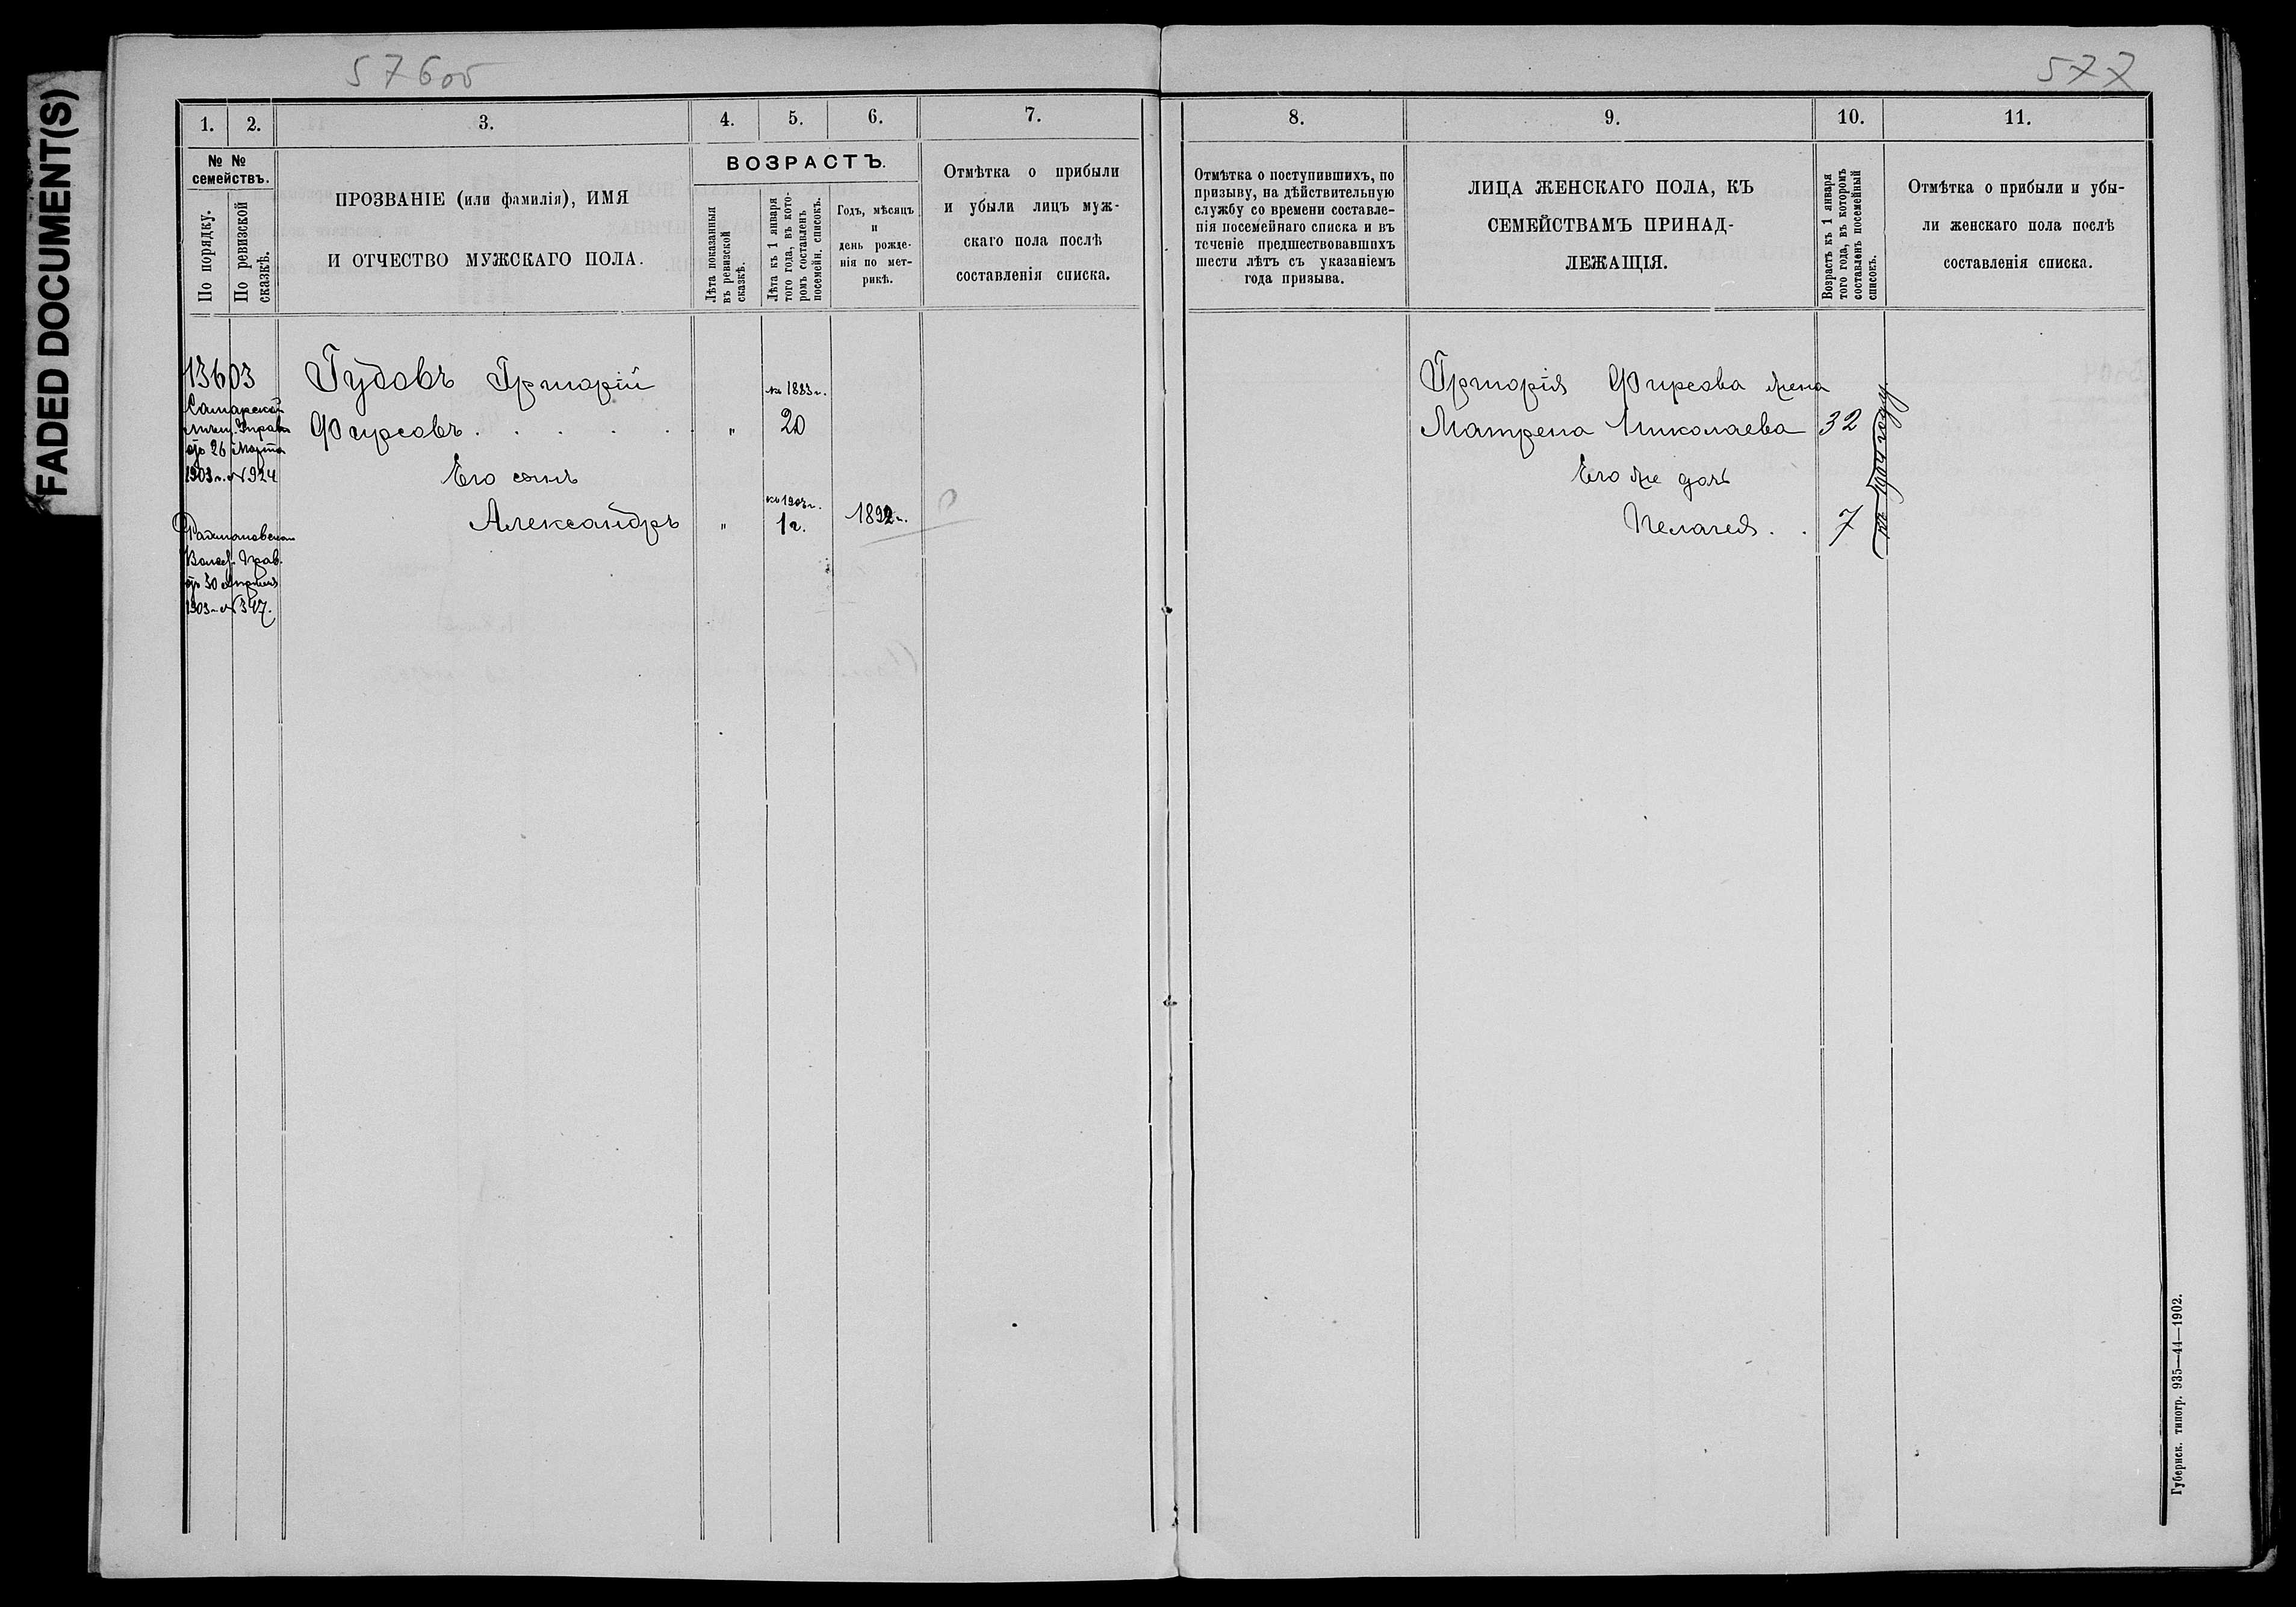 FADED DOCUMENT(S)
576об
577
1.
2.
3.
4.
5.
6.
7.
№ №
семействъ.
По порядку.
По ревизской
сказкѣ.
ПРОЗВАНІЕ (или фамилія), ИМЯ
И ОТЧЕСТВО МУЖСКАГО ПОЛА.
ВОЗРАСТЪ.
Лѣта показанныя
въ ревизской
сказкѣ.
Лѣта къ 1 января
того года, въ кото-
ромъ составленъ
посемейн. списокъ.
Годъ, мѣсяцъ
и
день рожде-
нія по мет-
рикѣ.
Отмѣтка о прибыли
и убыли лицъ муж-
скаго пола послѣ
составленія списка.
13603
Самарской
Мѣщ. Управы
отъ 26 Марта
1903 г. № 924
Волос. Прав.
отъ 30 Апрѣля
1903 г. № 347.
Гудовъ Григорій
Фирсовъ . . . . . " 20
къ 1883 г.
Его сынъ
къ 1903 г.
Александръ " 1 г. 1892 г.
8.
9.
10.
11.
Отмѣтка о поступившихъ, по
призыву, на дѣйствительную
службу со времени составле-
нія посемейнаго списка и въ
теченіе предшествовавшихъ
шести лѣтъ съ указаніемъ
года призыва.
ЛИЦА ЖЕНСКАГО ПОЛА, КЪ
СЕМЕЙСТВАМЪ ПРИНАД-
ЛЕЖАЩІЯ.
Возрастъ къ 1 января
того года, въ которомъ
составленъ посемейный
списокъ.
Отмѣтка о прибыли и убы-
ли женскаго пола послѣ
составленія списка.
Григорія Фирсова жена
Матрена Николаева 32
Его же дочь
Пелагея . . 7
къ 1904 году
Губернск. типогр. 935—44—1902.